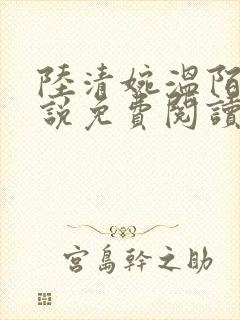 陸清婉溫陌
說免費閱讀
宮島幹之助